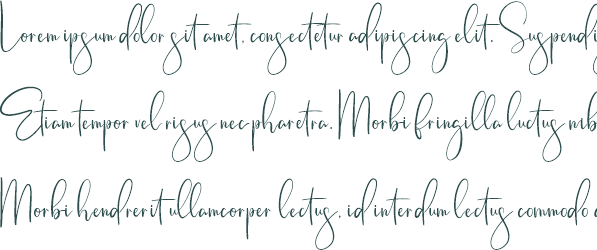 Lorem ipsum dolor sit amet, consectetur adipiscing elit. Suspendi
Etiam tempor vel risus nec pharetra. Morbi fringilla luctus nib
Morbi hendrerit ullamcorper lectus, id interdum lectus commodo